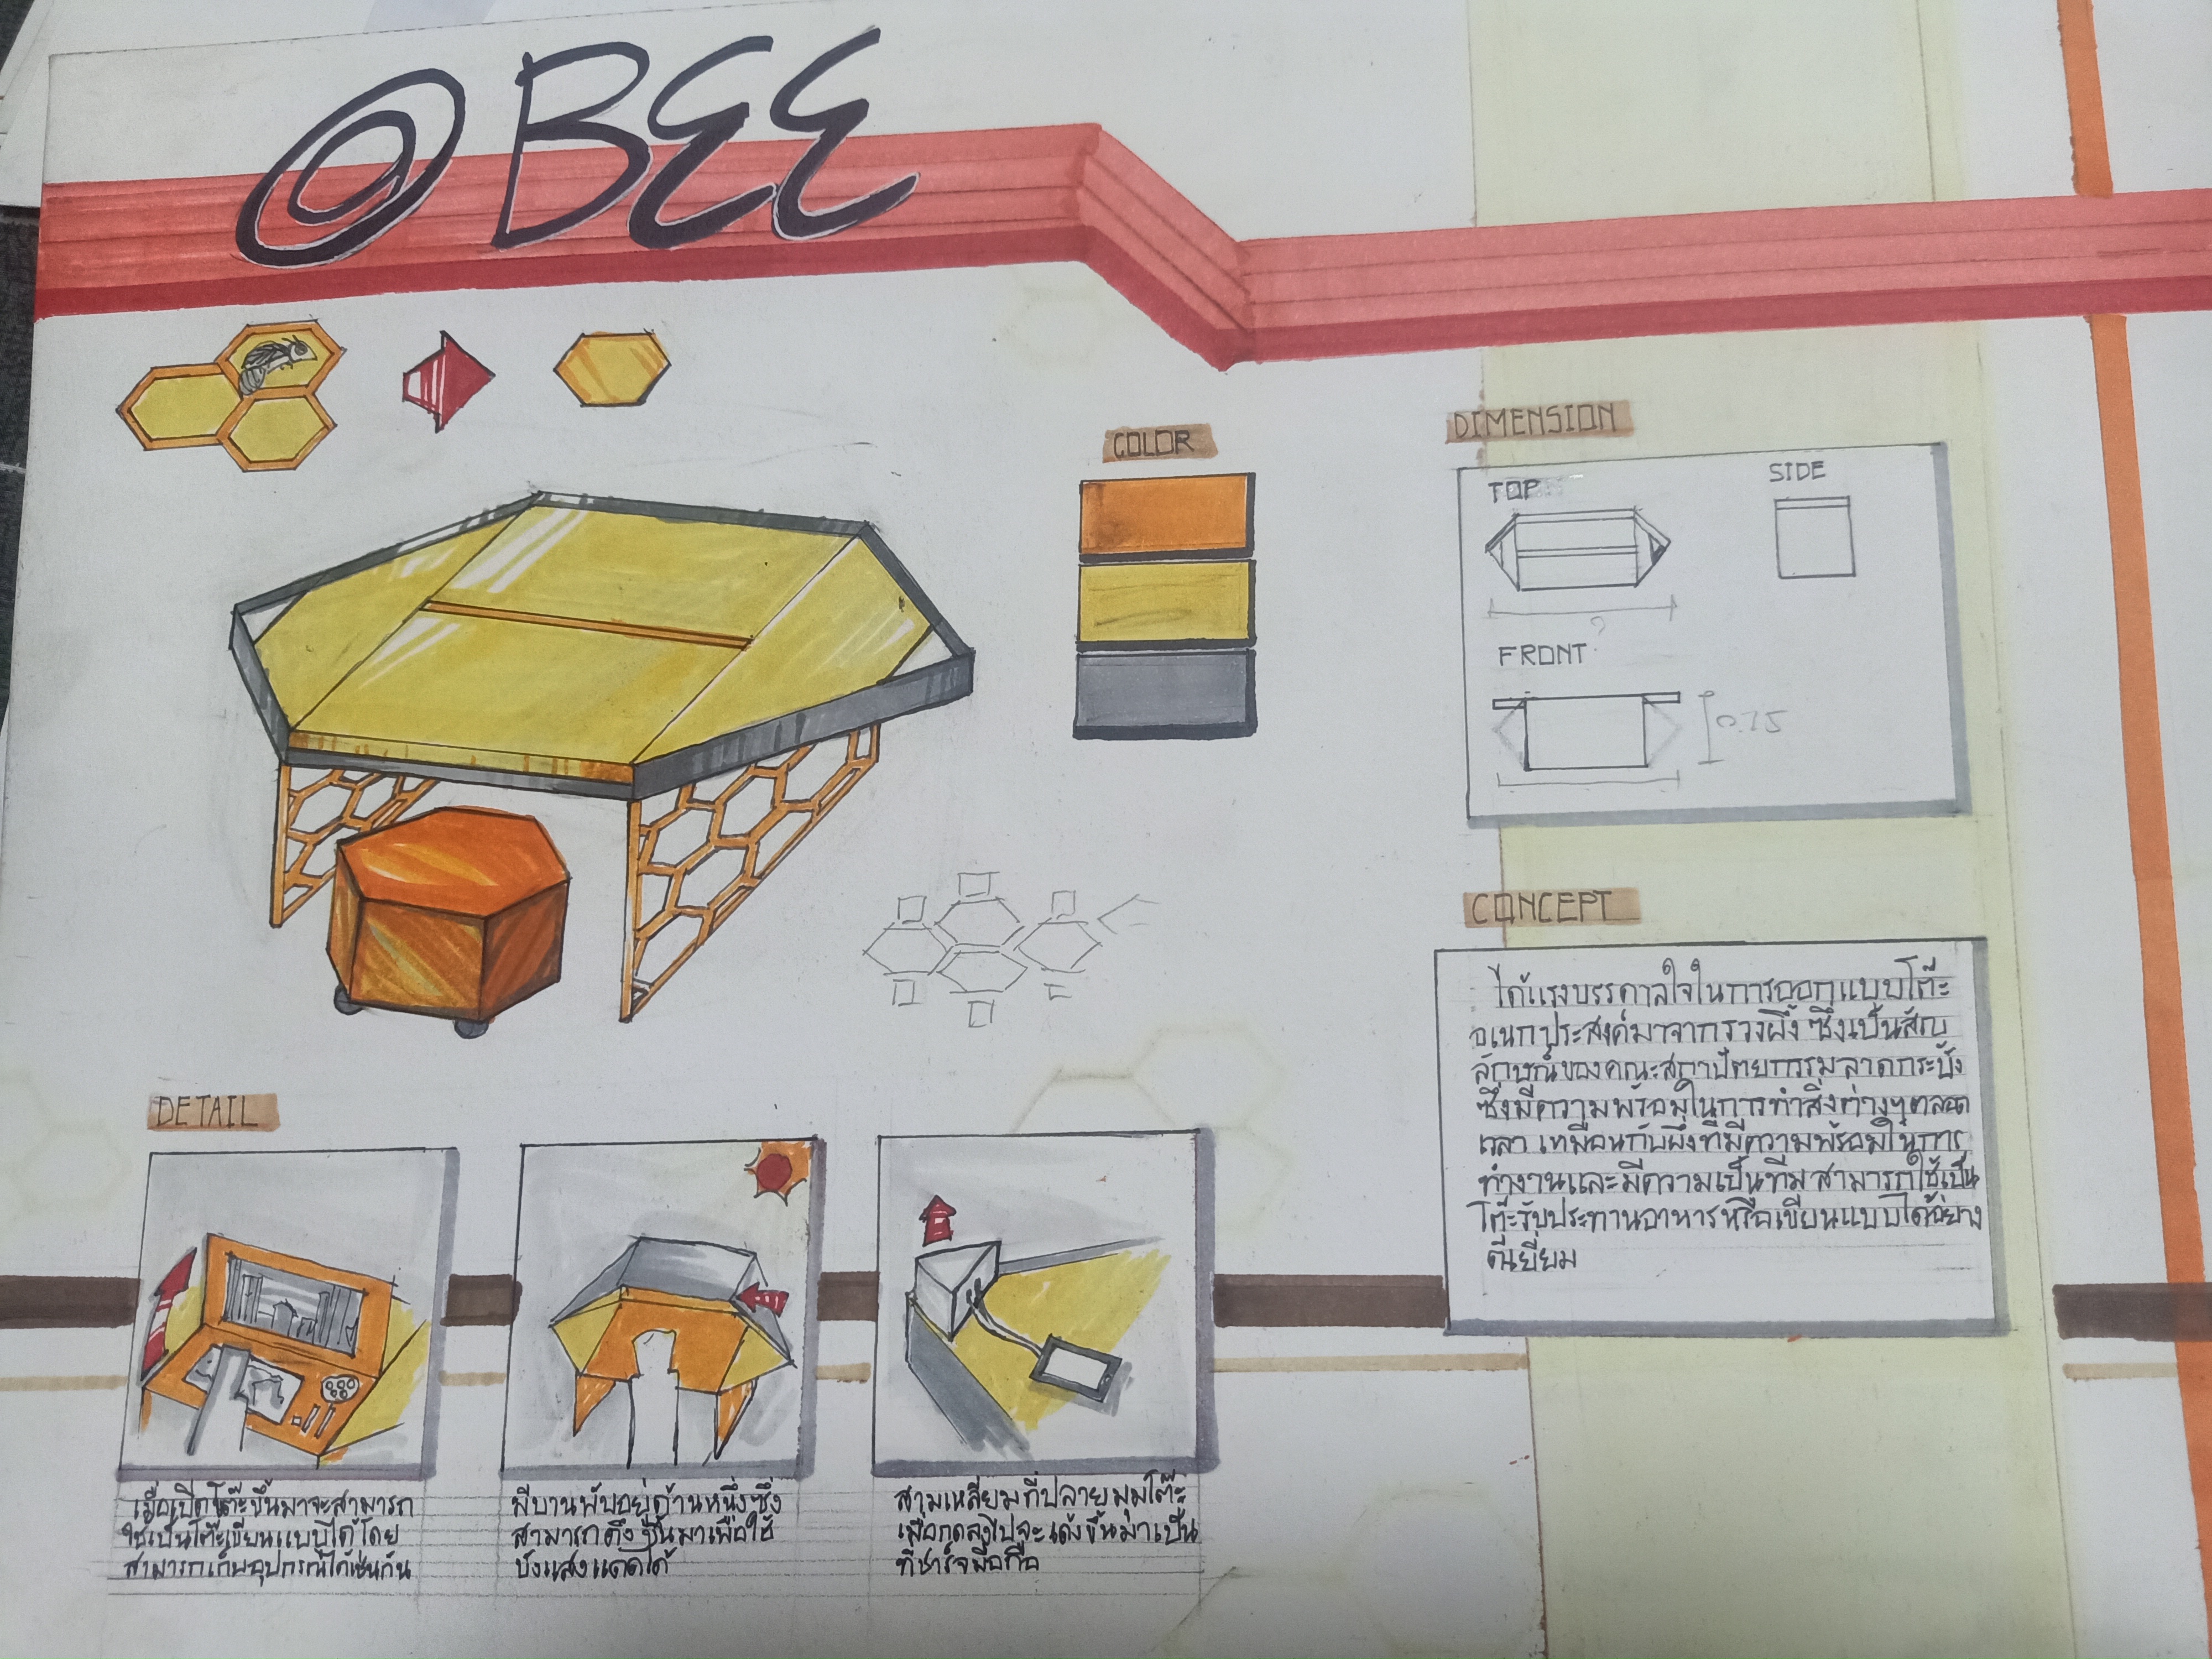 @BEE
COLOR
DIMENSION
TOP
SIDE
?
FRONT
0.75
CONCEPT
ได้แรงบรรดาลใจในการออกแบบโต๊ะ
อเนกประสงค์มาจากรวงผึ้ง ซึ่งเป็นสัญ
ลักษณ์ของคณะสถาปัตยกรรมลาดกระบัง
ซึ่งมีความพร้อมในการทำสิ่งต่างๆตลอด
เวลา เหมือนกับผึ้งที่มีความพร้อมในการ
ทำงานและมีความเป็นทีม สามารถใช้เป็น
โต๊ะรับประทานอาหารหรือเขียนแบบได้อย่าง
ดีเยี่ยม
DETAIL
เมื่อเปิดโต๊ะขึ้นมาจะสามารถ
ใช้เป็นโต๊ะเขียนแบบได้โดย
สามารถเก็บอุปกรณ์ได้เช่นกัน
มีบานพับอยู่ด้านหนึ่งซึ่ง
สามารถดึงขึ้นมาเพื่อใช้
บังแสงแดดได้
สามเหลี่ยมที่ปลายมุมโต๊ะ
เมื่อกดลงไปจะเด้งขึ้นมาเป็น
ที่ชาร์จมือถือ